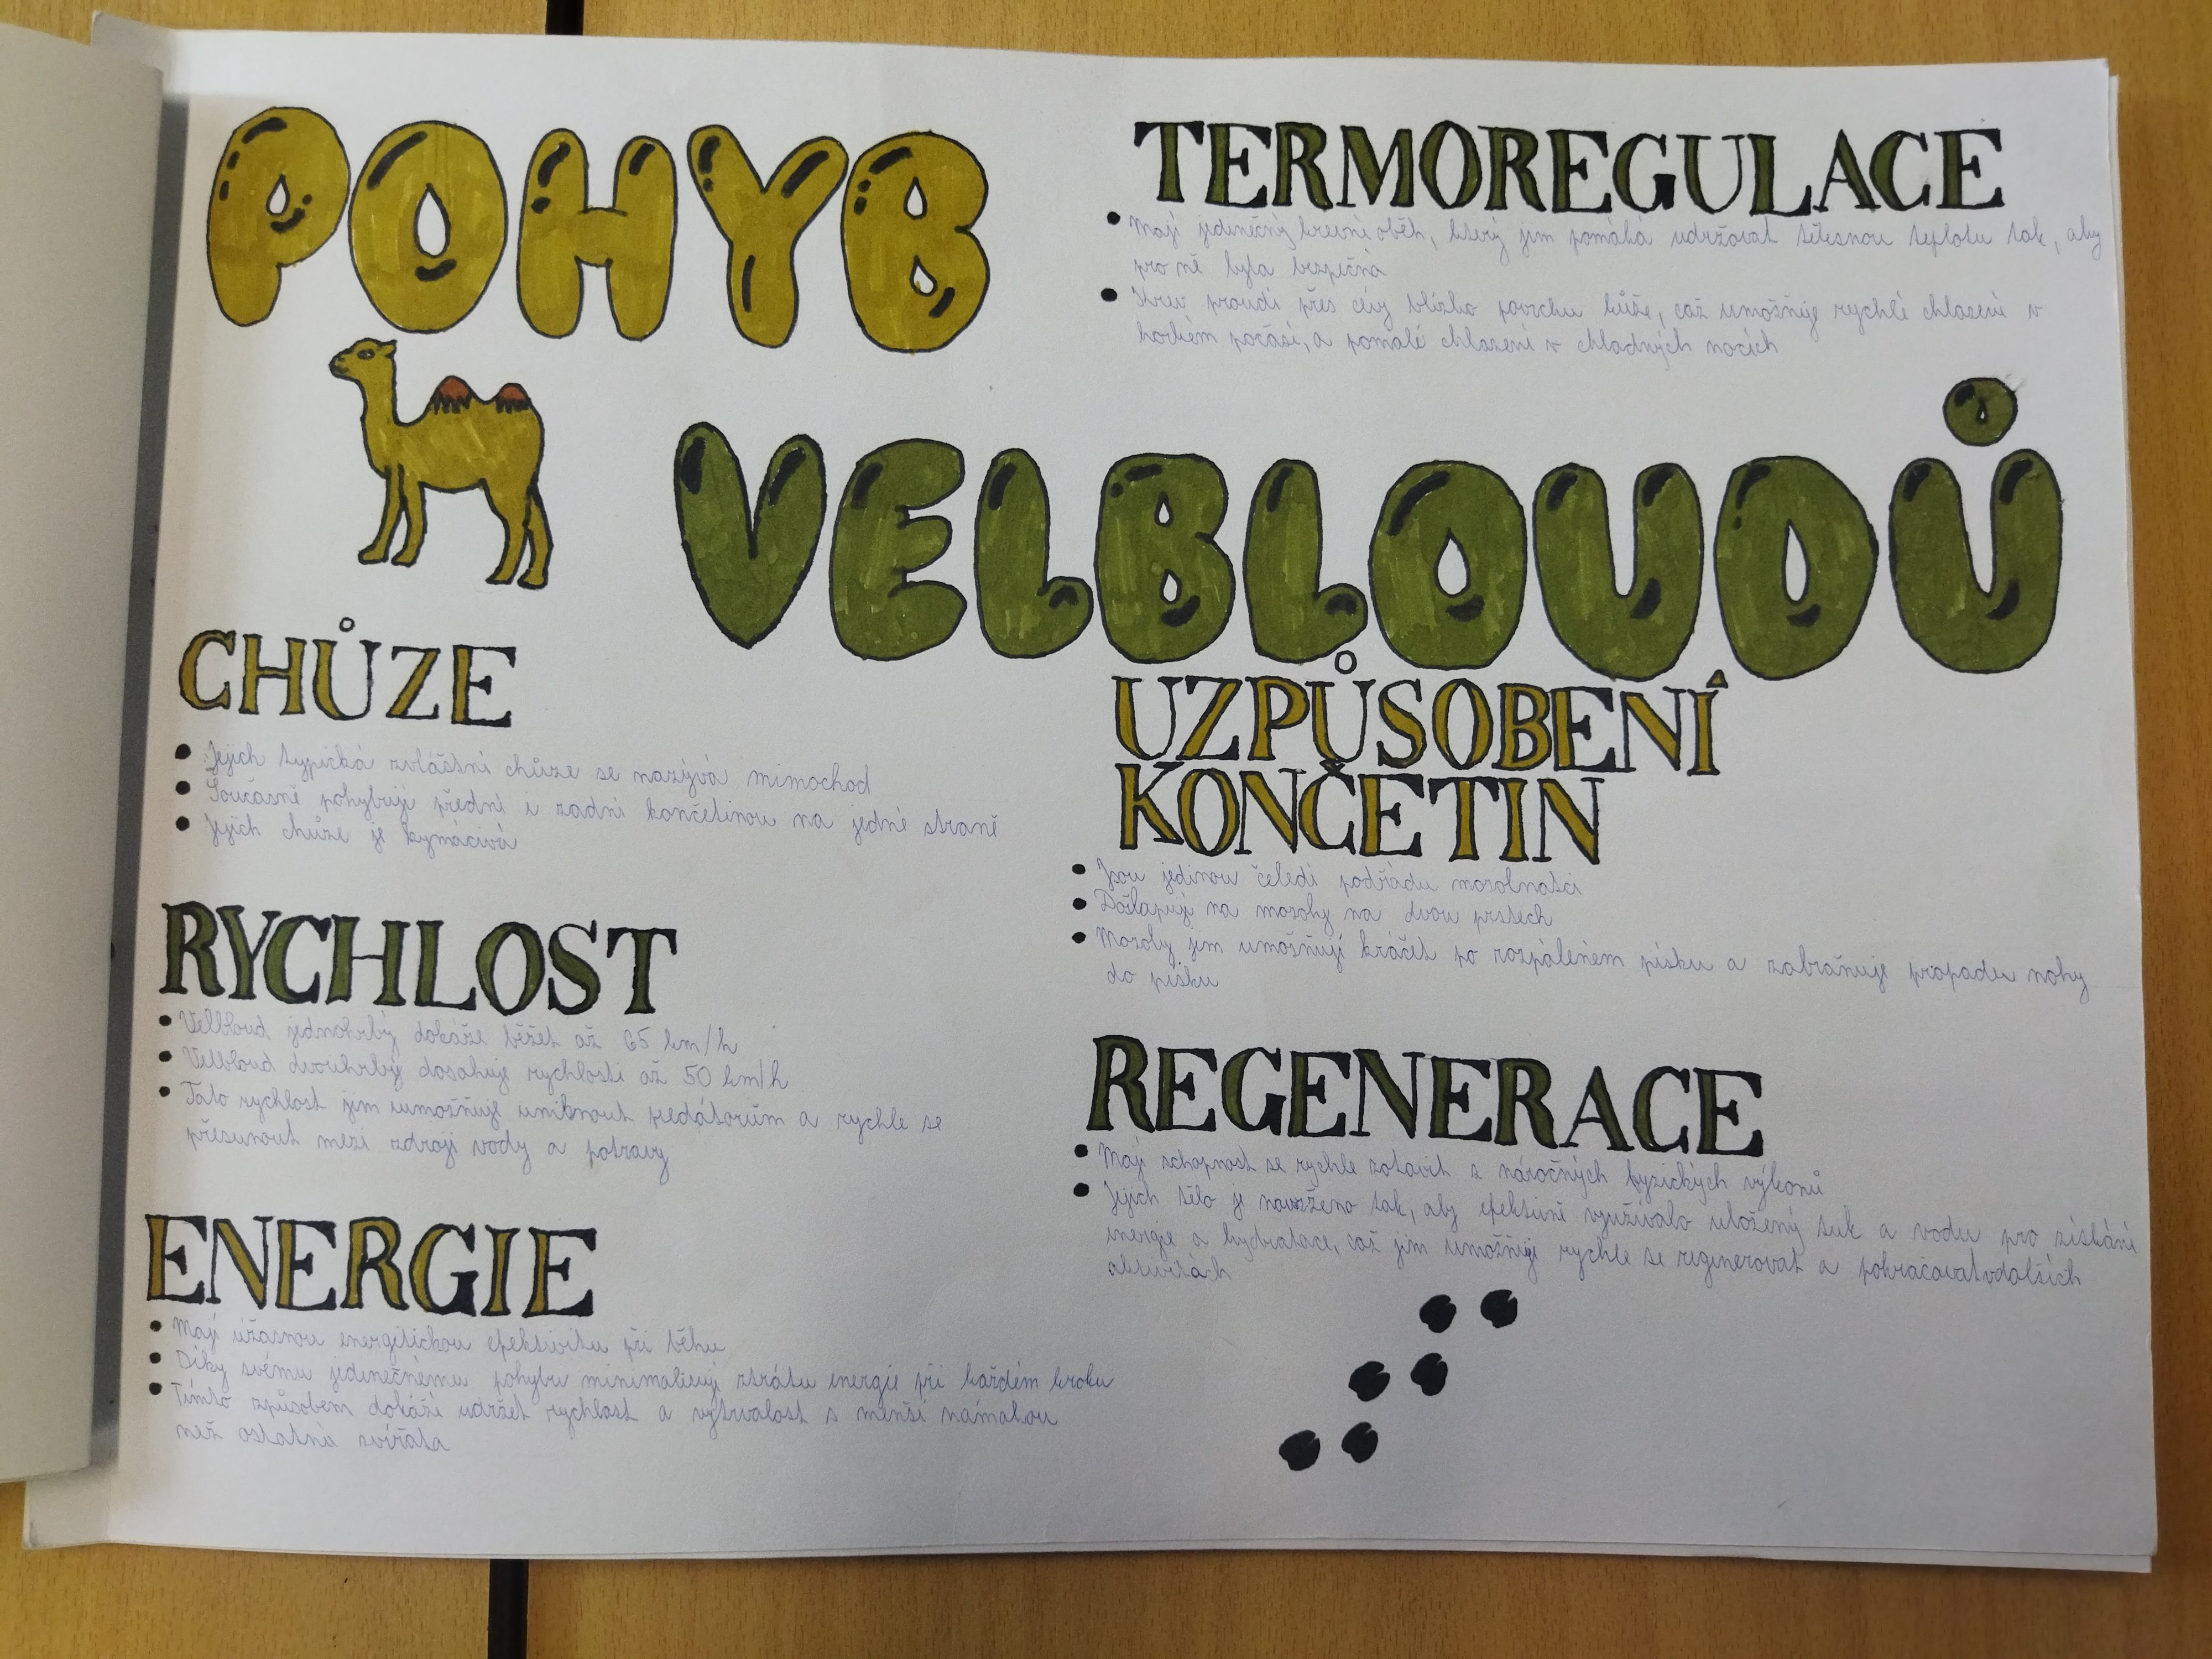 POHYB
VELBLOUDŮ
CHŮZE
• Jejich typická zvláštní chůze se nazývá mimochod
• Současně pohybují přední i zadní končetinou na jedné straně
• Jejich chůze je kymácivá
RYCHLOST
• Velbloud jednohrbý dokáže běžet až 65 km/h
• Velbloud dvouhrbý dosahuje rychlosti až 50 km/h
• Tato rychlost jim umožňuje uniknout predátorům a rychle se
přesunout mezi zdroji vody a potravy
ENERGIE
• Mají úžasnou energetickou efektivitu při běhu
• Díky svému jedinečnému pohybu minimalizují ztrátu energie při každém kroku
• Tímto způsobem dokáží udržet rychlost a vytrvalost s menší námahou
než ostatní zvířata
TERMOREGULACE
• Mají jedinečný krevní oběh, který jim pomáhá udržovat tělesnou teplotu tak, aby
pro ně byla bezpečná
• Krev proudí přes cévy blízko povrchu kůže, což umožňuje rychlé chlazení v
horkém počasí, a pomalé chlazení v chladných nocích
UZPŮSOBENÍ
KONČETIN
• Jsou jedinou čeledí podřádu mozolnatci
• Došlapují na mozoly na dvou prstech
• Mozoly jim umožňují kráčet po rozpáleném písku a zabraňuje propadu nohy
do písku
REGENERACE
• Mají schopnost se rychle zotavit z náročných fyzických výkonů
• Jejich tělo je navrženo tak, aby efektivně využívalo uložený tuk a vodu pro získání
energie a hydratace, což jim umožňuje rychle se regenerovat a pokračovat v dalších
aktivitách